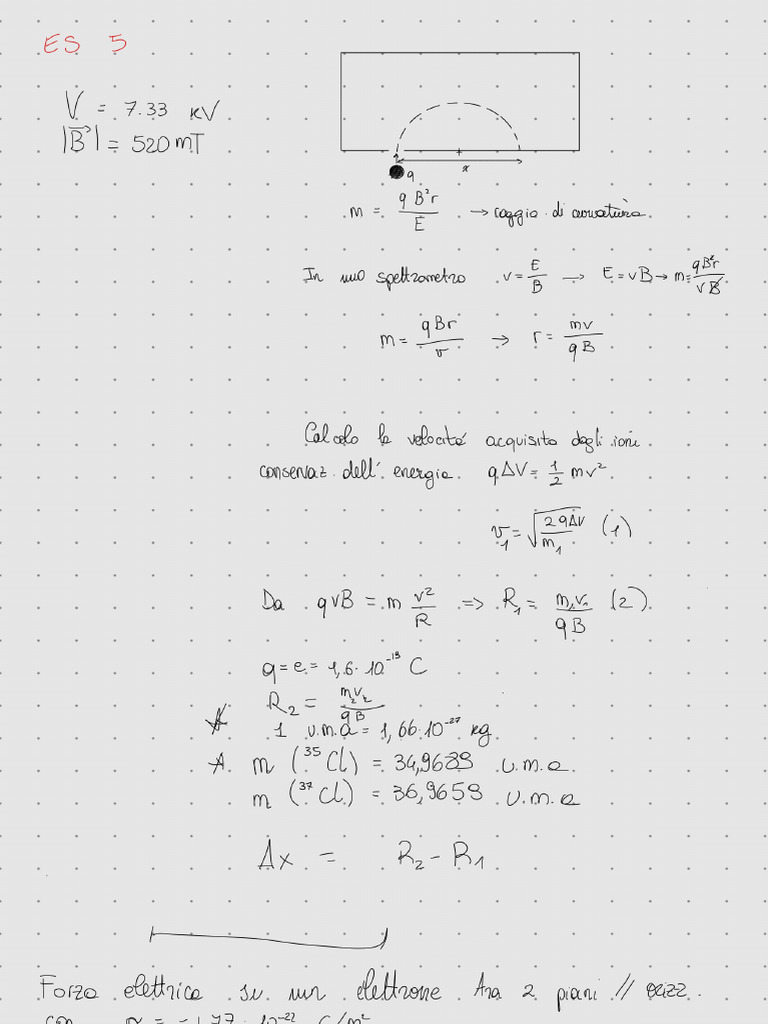 ES 5
V = 7.33 kV
|B⃗| = 520 mT
q
x
m = qB²r/E → raggio di curvatura
In uno spettrometro v = E/B → E = vB → m = qB²r/vB
m = qBr/v → r = mv/qB
Calcolo la velocità acquisita dagli ioni
conservaz. dell' energia. qΔV = 1/2 mv².
v₁ = √(2qΔV/m₁) (1)
Da qvB = m v²/R => R₁ = m₁v₁/qB (2).
q = e = 1,6 · 10⁻¹⁹ C
R₂ = m₂v₂/qB
1 u.m.a = 1,66 · 10⁻²⁷ kg
m (³⁵Cl) = 34,9689 u.m.a
m (³⁷Cl) = 36,9659 u.m.a
Δx = R₂ - R₁
Forza elettrica su un elettrone tra 2 piani // orizz.